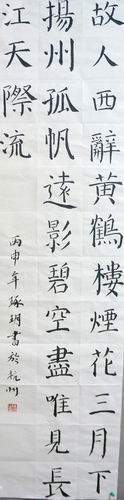 故人西辭黃鶴樓煙花三月下
揚州孤帆遠影碧空盡唯見長
江天際流
丙申年琢玥書於杭州